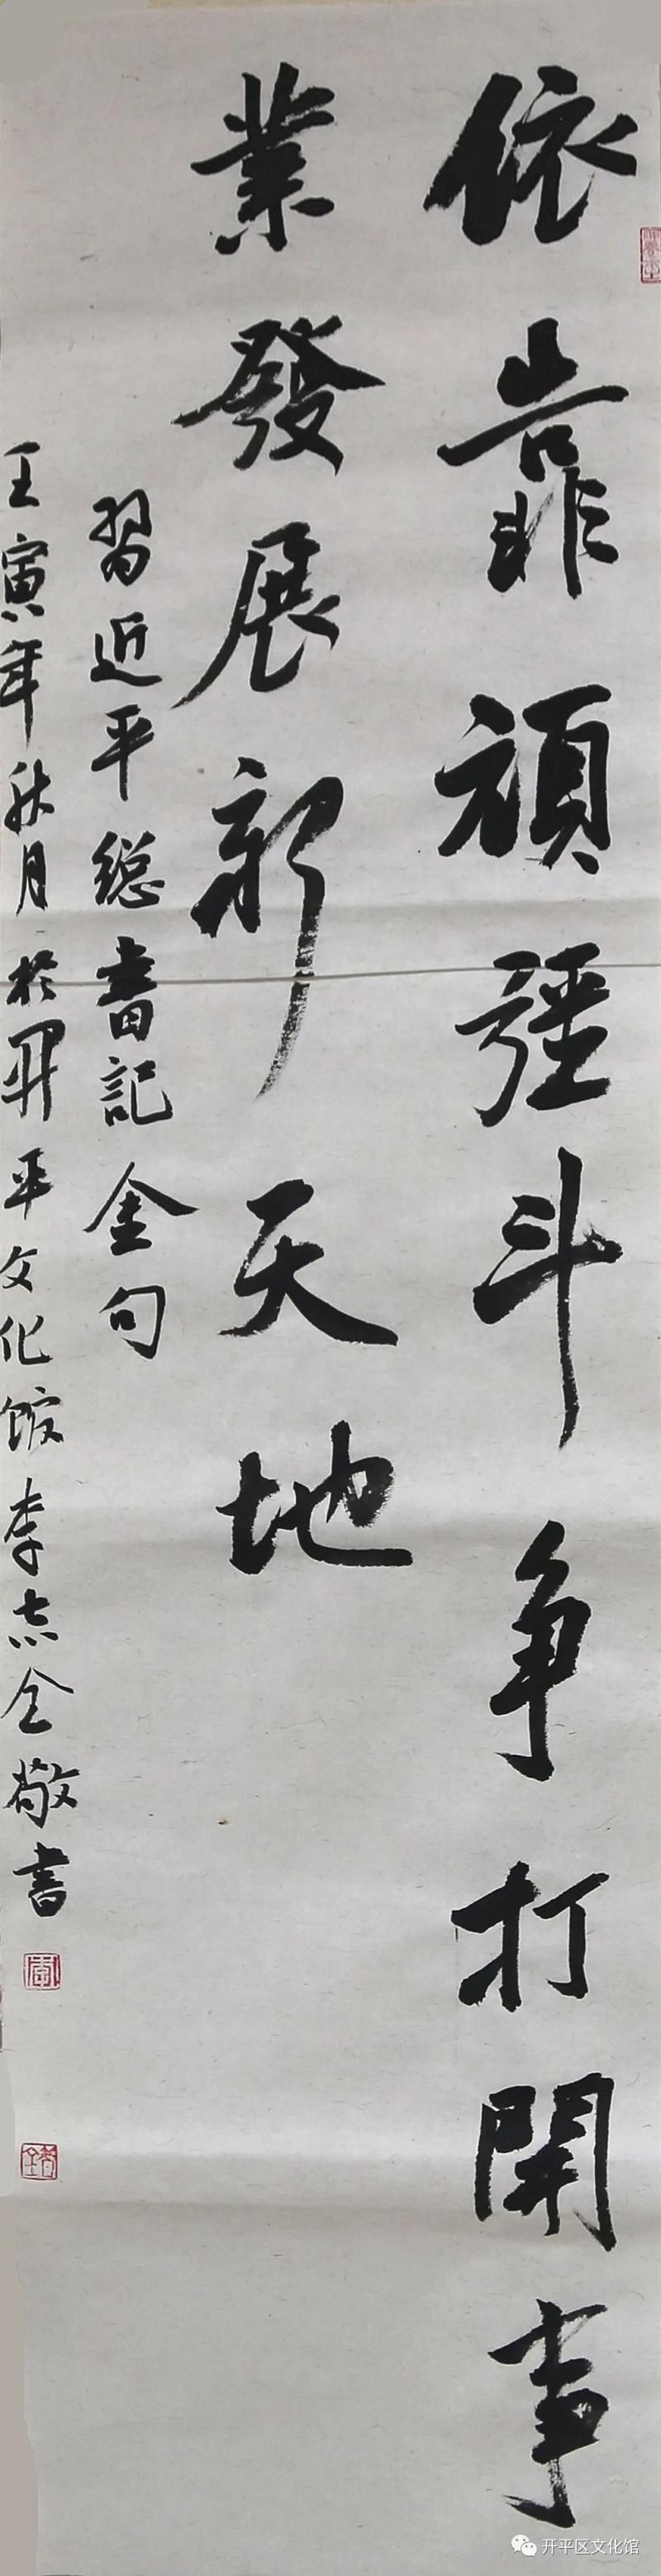 依靠頑强斗争打開事
業發展新天地
習近平總書記金句
壬寅年秋月於開平文化館李志全敬書
开平区文化馆